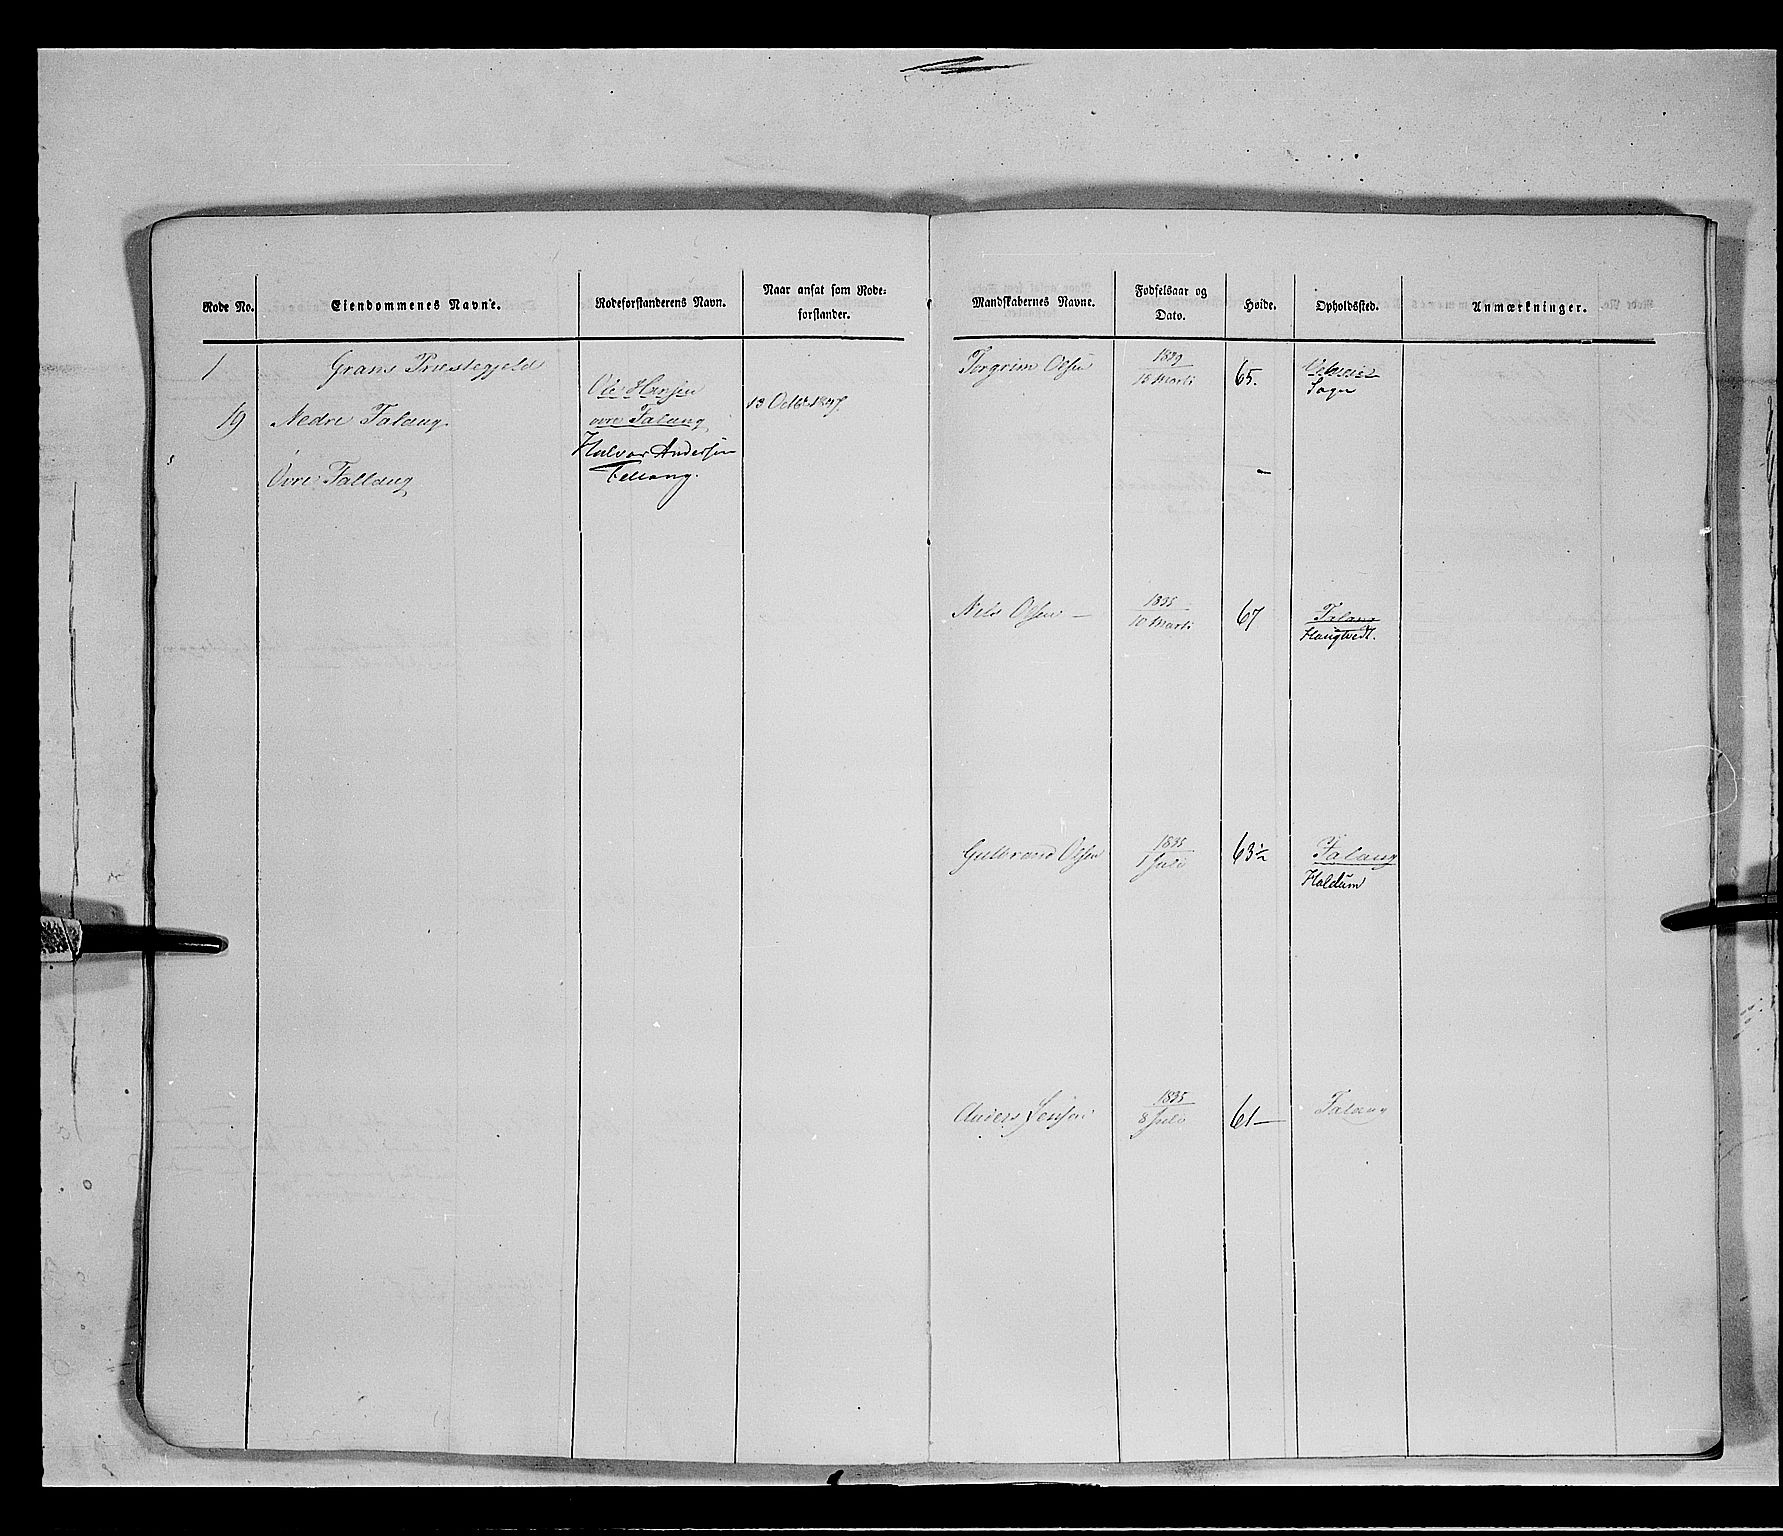 Rode No.
Eiendommenes Navne.
Rodeforstanderens Navn.
Naar ansat som Rode-
forstander.
1
Grans Præstegjeld
19
Nedre Falang.
Ole Hansen
øvre Falang
13 Octbr 1847.
Halvor Andersen
Fallang.
Øvre Fallang
Mandskabernes Navne.
Fødselsaar og
Dato.
Høide.
Opholdssted.
Anmærkninger.
Torgrim Olsen
1829
15 Marts
65.
Sogn
Nils Olsen —
1835
10 Marts
67
Falang
Haugtvedt.
Gulbrand Olsen
1835
1 Juli
63½
Falang
Haldum
Anders Jensen
1835
8 Juli
61 —
Falang